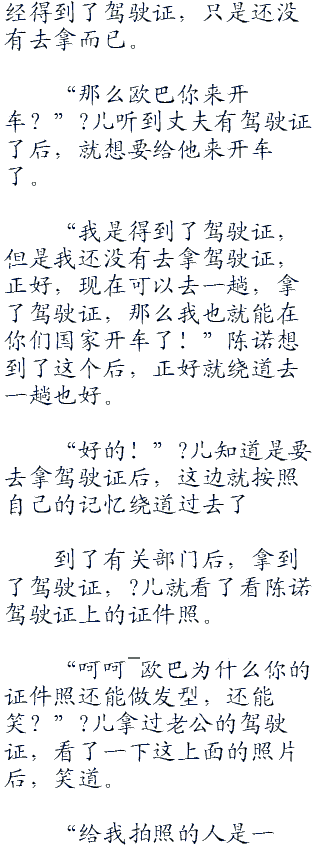 经得到了驾驶证，只是还没
有去拿而已。
“那么欧巴你来开
车？”?儿听到丈夫有驾驶证
了后，就想要给他来开车
了。
“我是得到了驾驶证，
但是我还没有去拿驾驶证，
正好，现在可以去一趟，拿
了驾驶证，那么我也就能在
你们国家开车了！”陈诺想
到了这个后，正好就绕道去
一趟也好。
“好的！”?儿知道是要
去拿驾驶证后，这边就按照
自己的记忆绕道过去了
到了有关部门后，拿到
了驾驶证，?儿就看了看陈诺
驾驶证上的证件照。
“呵呵~欧巴为什么你的
证件照还能做发型，还能
笑？”?儿拿过老公的驾驶
证，看了一下这上面的照片
后，笑道。
“给我拍照的人是一